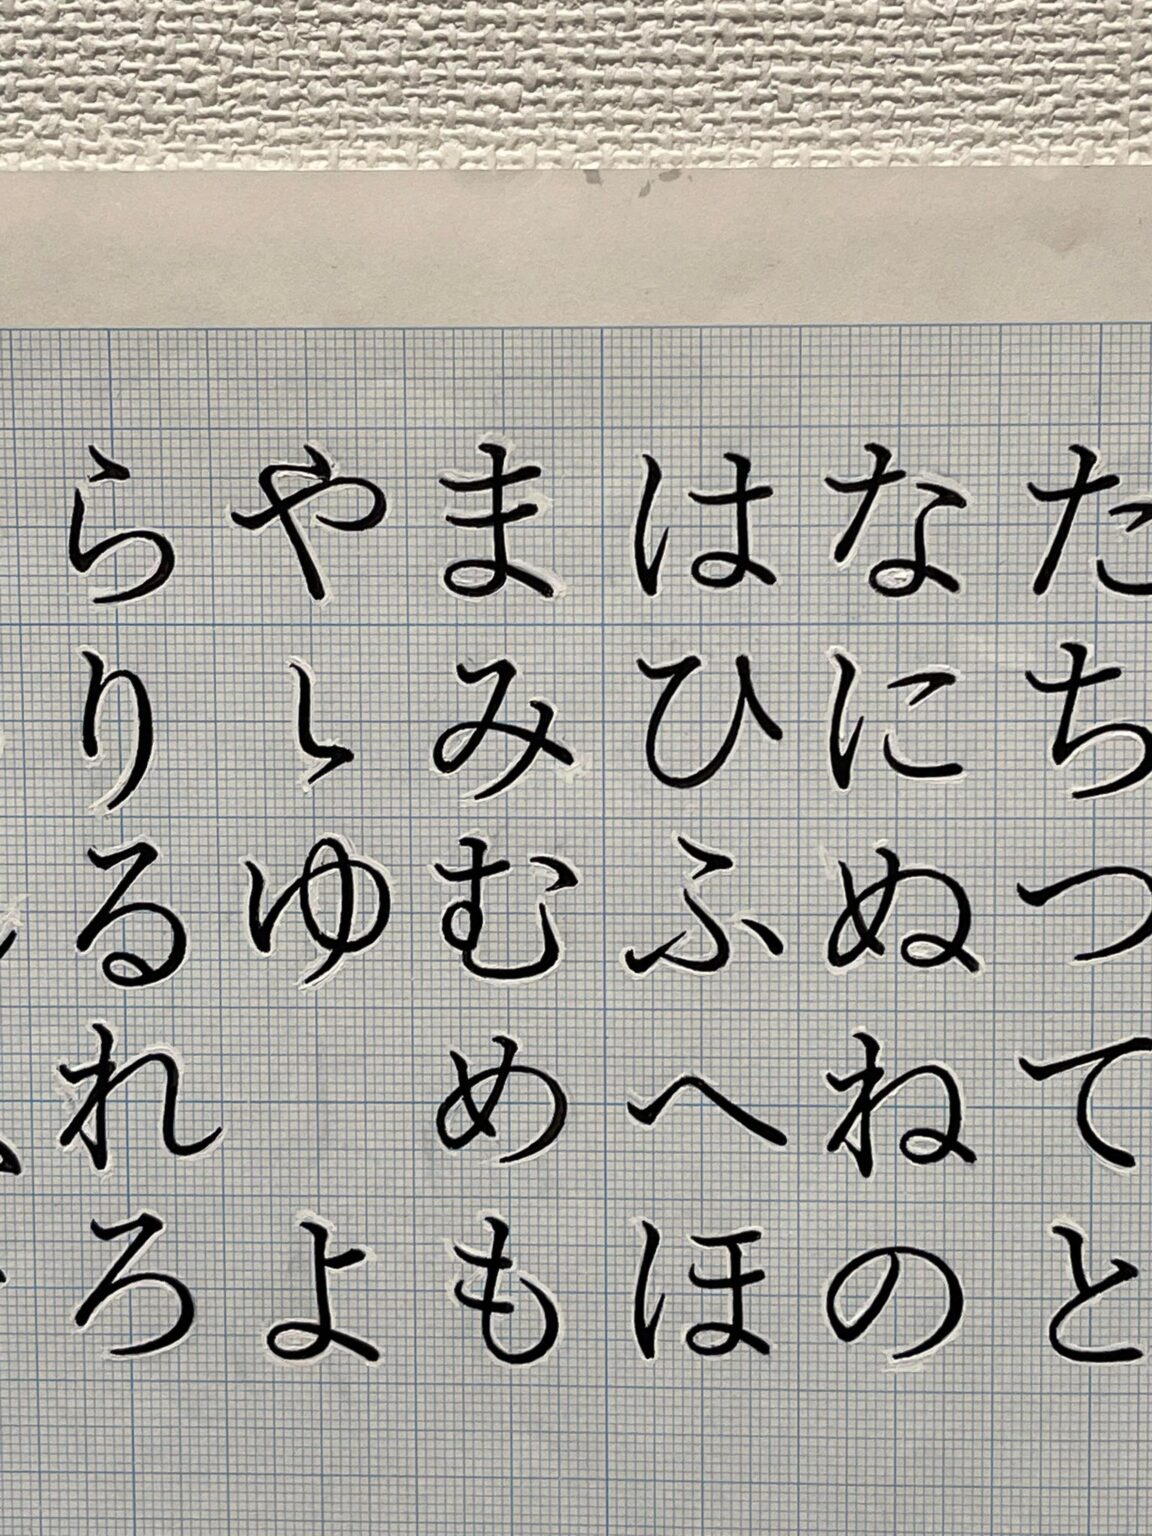 たちつてと
なにぬねの
はひふへほ
まみむめも
やゝゆよ
らりるれろ